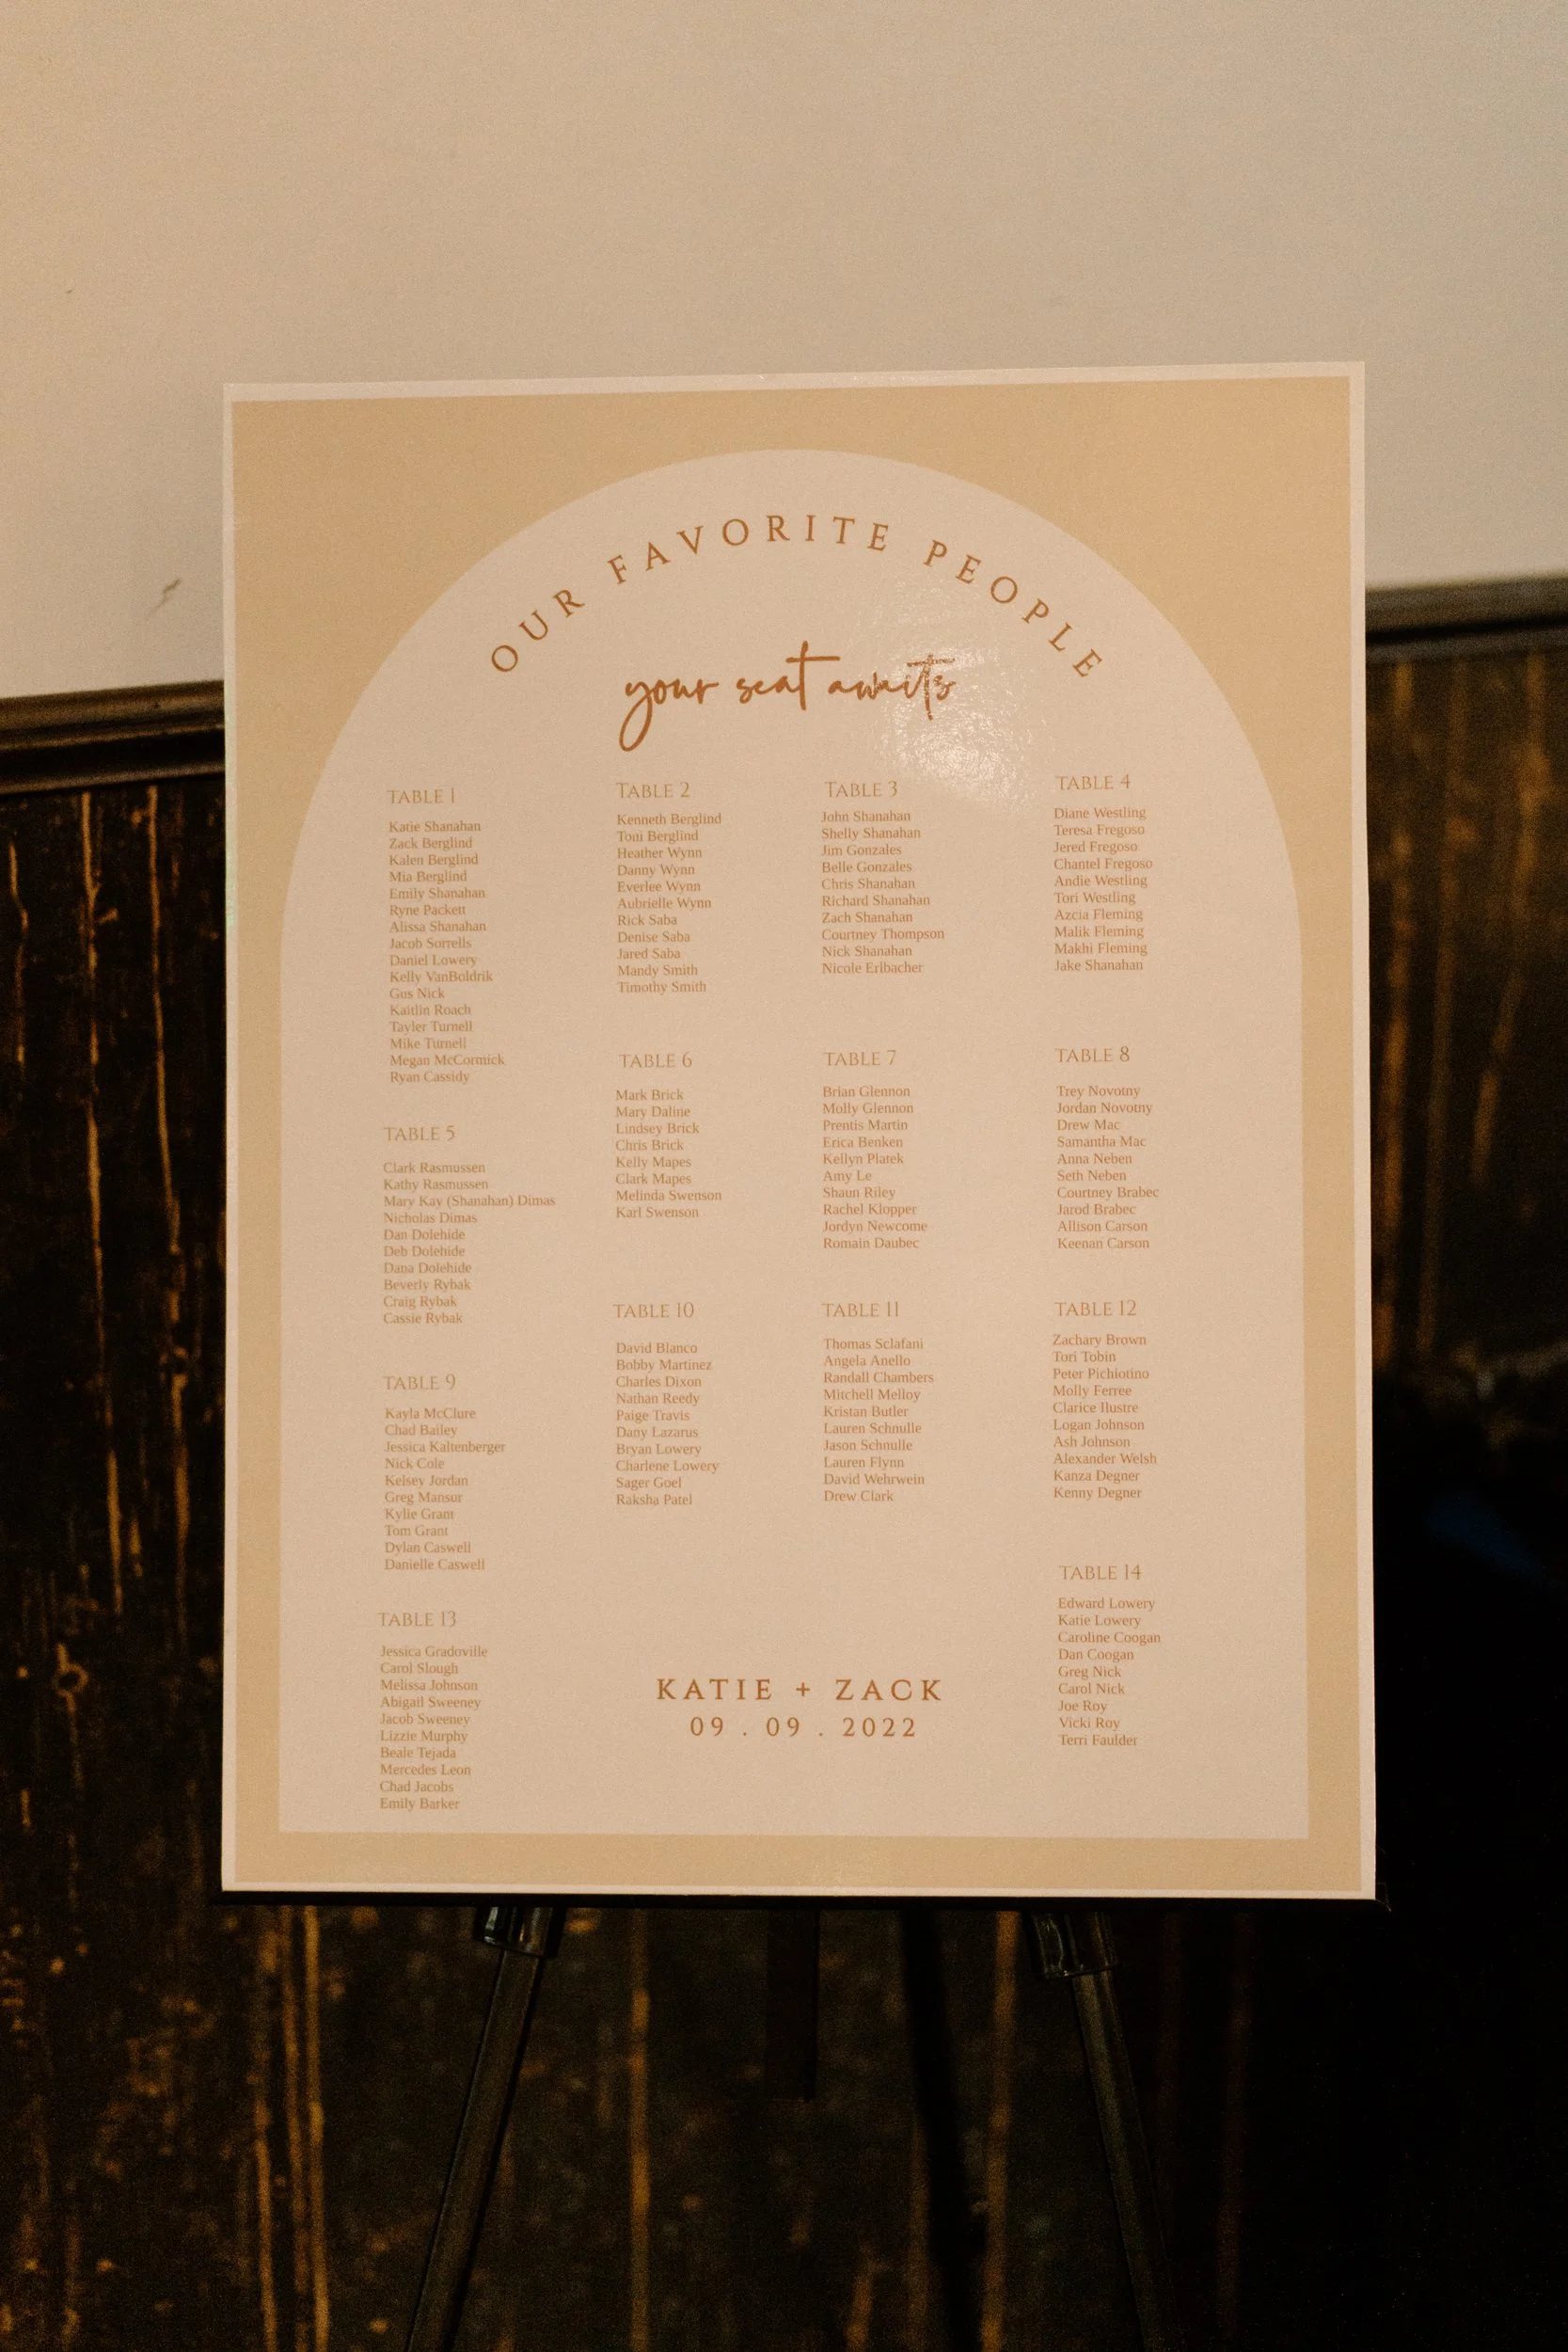 OUR FAVORITE PEOPLE
your seat awaits
TABLE 1
Katie Shanahan
Zack Berglind
Kalen Berglind
Mia Berglind
Emily Shanahan
Ryne Packett
Alissa Shanahan
Jacob Sorrells
Daniel Lowery
Kelly VanBoldrik
Gus Nick
Kaitlin Roach
Tayler Turnell
Mike Turnell
Megan McCormick
Ryan Cassidy
TABLE 2
Kenneth Berglind
Toni Berglind
Heather Wynn
Danny Wynn
Everlee Wynn
Aubrielle Wynn
Rick Saba
Denise Saba
Jared Saba
Mandy Smith
Timothy Smith
TABLE 3
John Shanahan
Shelly Shanahan
Jim Gonzales
Belle Gonzales
Chris Shanahan
Richard Shanahan
Zach Shanahan
Courtney Thompson
Nick Shanahan
Nicole Erlbacher
TABLE 4
Diane Westling
Teresa Fregoso
Jered Fregoso
Chantel Fregoso
Andie Westling
Tori Westling
Azcia Fleming
Malik Fleming
Makhi Fleming
Jake Shanahan
TABLE 5
Clark Rasmussen
Kathy Rasmussen
Mary Kay (Shanahan) Dimas
Nicholas Dimas
Dan Dolehide
Deb Dolehide
Dana Dolehide
Beverly Rybak
Craig Rybak
Cassie Rybak
TABLE 6
Mark Brick
Mary Daline
Lindsey Brick
Chris Brick
Kelly Mapes
Clark Mapes
Melinda Swenson
Karl Swenson
TABLE 7
Brian Glennon
Molly Glennon
Prentis Martin
Erica Benken
Kellyn Platek
Amy Le
Shaun Riley
Rachel Klopper
Jordyn Newcome
Romain Daubec
TABLE 8
Trey Novotny
Jordan Novotny
Drew Mac
Samantha Mac
Anna Neben
Seth Neben
Courtney Brabec
Jarod Brabec
Allison Carson
Keenan Carson
TABLE 9
Kayla McClure
Chad Bailey
Jessica Kaltenberger
Nick Cole
Kelsey Jordan
Greg Mansur
Kylie Grant
Tom Grant
Dylan Caswell
Danielle Caswell
TABLE 10
David Blanco
Bobby Martinez
Charles Dixon
Nathan Reedy
Paige Travis
Dany Lazarus
Bryan Lowery
Charlene Lowery
Sager Goel
Raksha Patel
TABLE 11
Thomas Sclafani
Angela Anello
Randall Chambers
Mitchell Melloy
Kristan Butler
Lauren Schnulle
Jason Schnulle
Lauren Flynn
David Wehrwein
Drew Clark
TABLE 12
Zachary Brown
Tori Tobin
Peter Pichiotino
Molly Ferree
Clarice Ilustre
Logan Johnson
Ash Johnson
Alexander Welsh
Kanza Degner
Kenny Degner
TABLE 13
Jessica Gradoville
Carol Slough
Melissa Johnson
Abigail Sweeney
Jacob Sweeney
Lizzie Murphy
Beale Tejada
Mercedes Leon
Chad Jacobs
Emily Barker
KATIE + ZACK
09 . 09 . 2022
TABLE 14
Edward Lowery
Katie Lowery
Caroline Coogan
Dan Coogan
Greg Nick
Carol Nick
Joe Roy
Vicki Roy
Terri Faulder